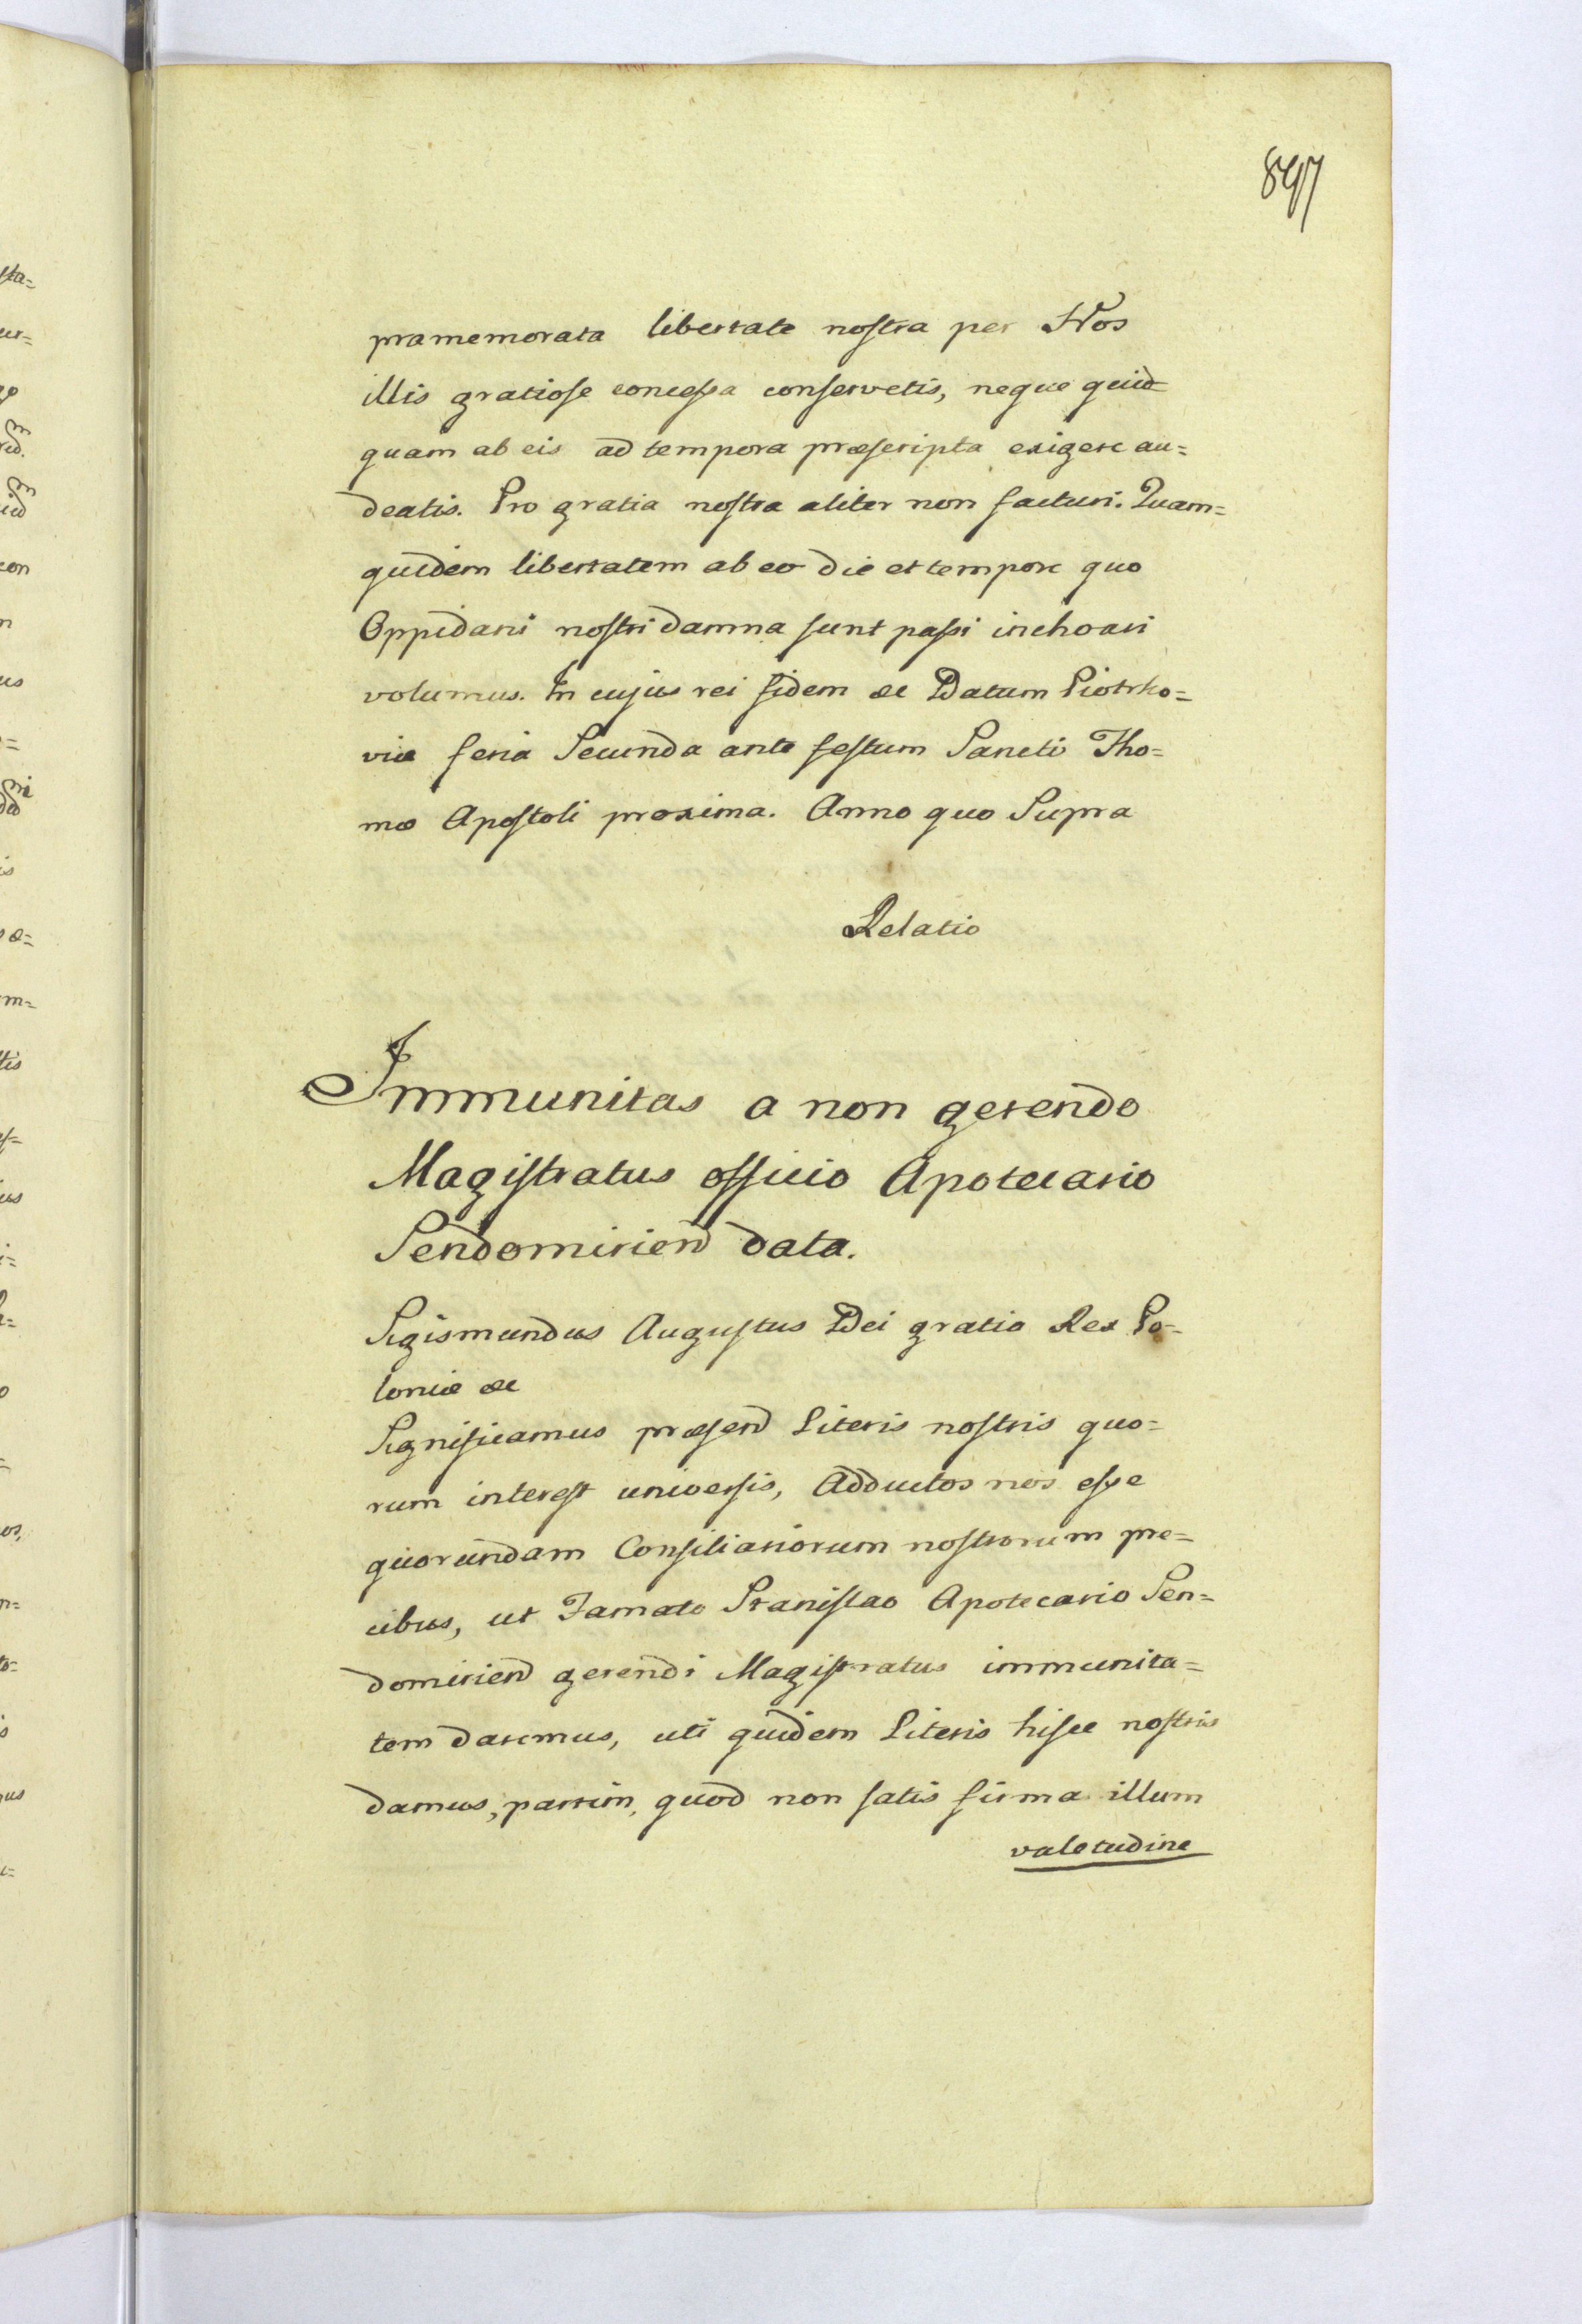 897
pramemorata libertate nostra per Nos
illis gratiose concessa conservetis, neque quid
quam ab eis ad tempora præscripta exigere au=
deatis. Pro gratia nostra aliter non facturi. Quam=
quidem libertatem ab eo die et tempore quo
Oppidani nostri damna sunt passi inchoari
volumus. In cujus rei fidem &c Datum Piotrko=
viæ feria Secunda ante festum Sancti Tho=
mæ Apostoli proxima. Anno quo Supra
Relatio
Immunitas a non gerendo
Magistratus officio Apotecario
Sendomirien data.
Sigismundus Augustus Dei gratia Rex Po=
loniæ &c
Significamus præsen Literis nostris quo=
rum interest universis, Adductos nos esse
quorundam Consiliariorum nostrorum pre=
cibus, ut Famato Stanislao Apotecario Sen=
domirien gerendi Magistratus immunita=
tem daremus, uti quidem Literis hisce nostris
damus, partim, quod non satis firma illum
valetudine